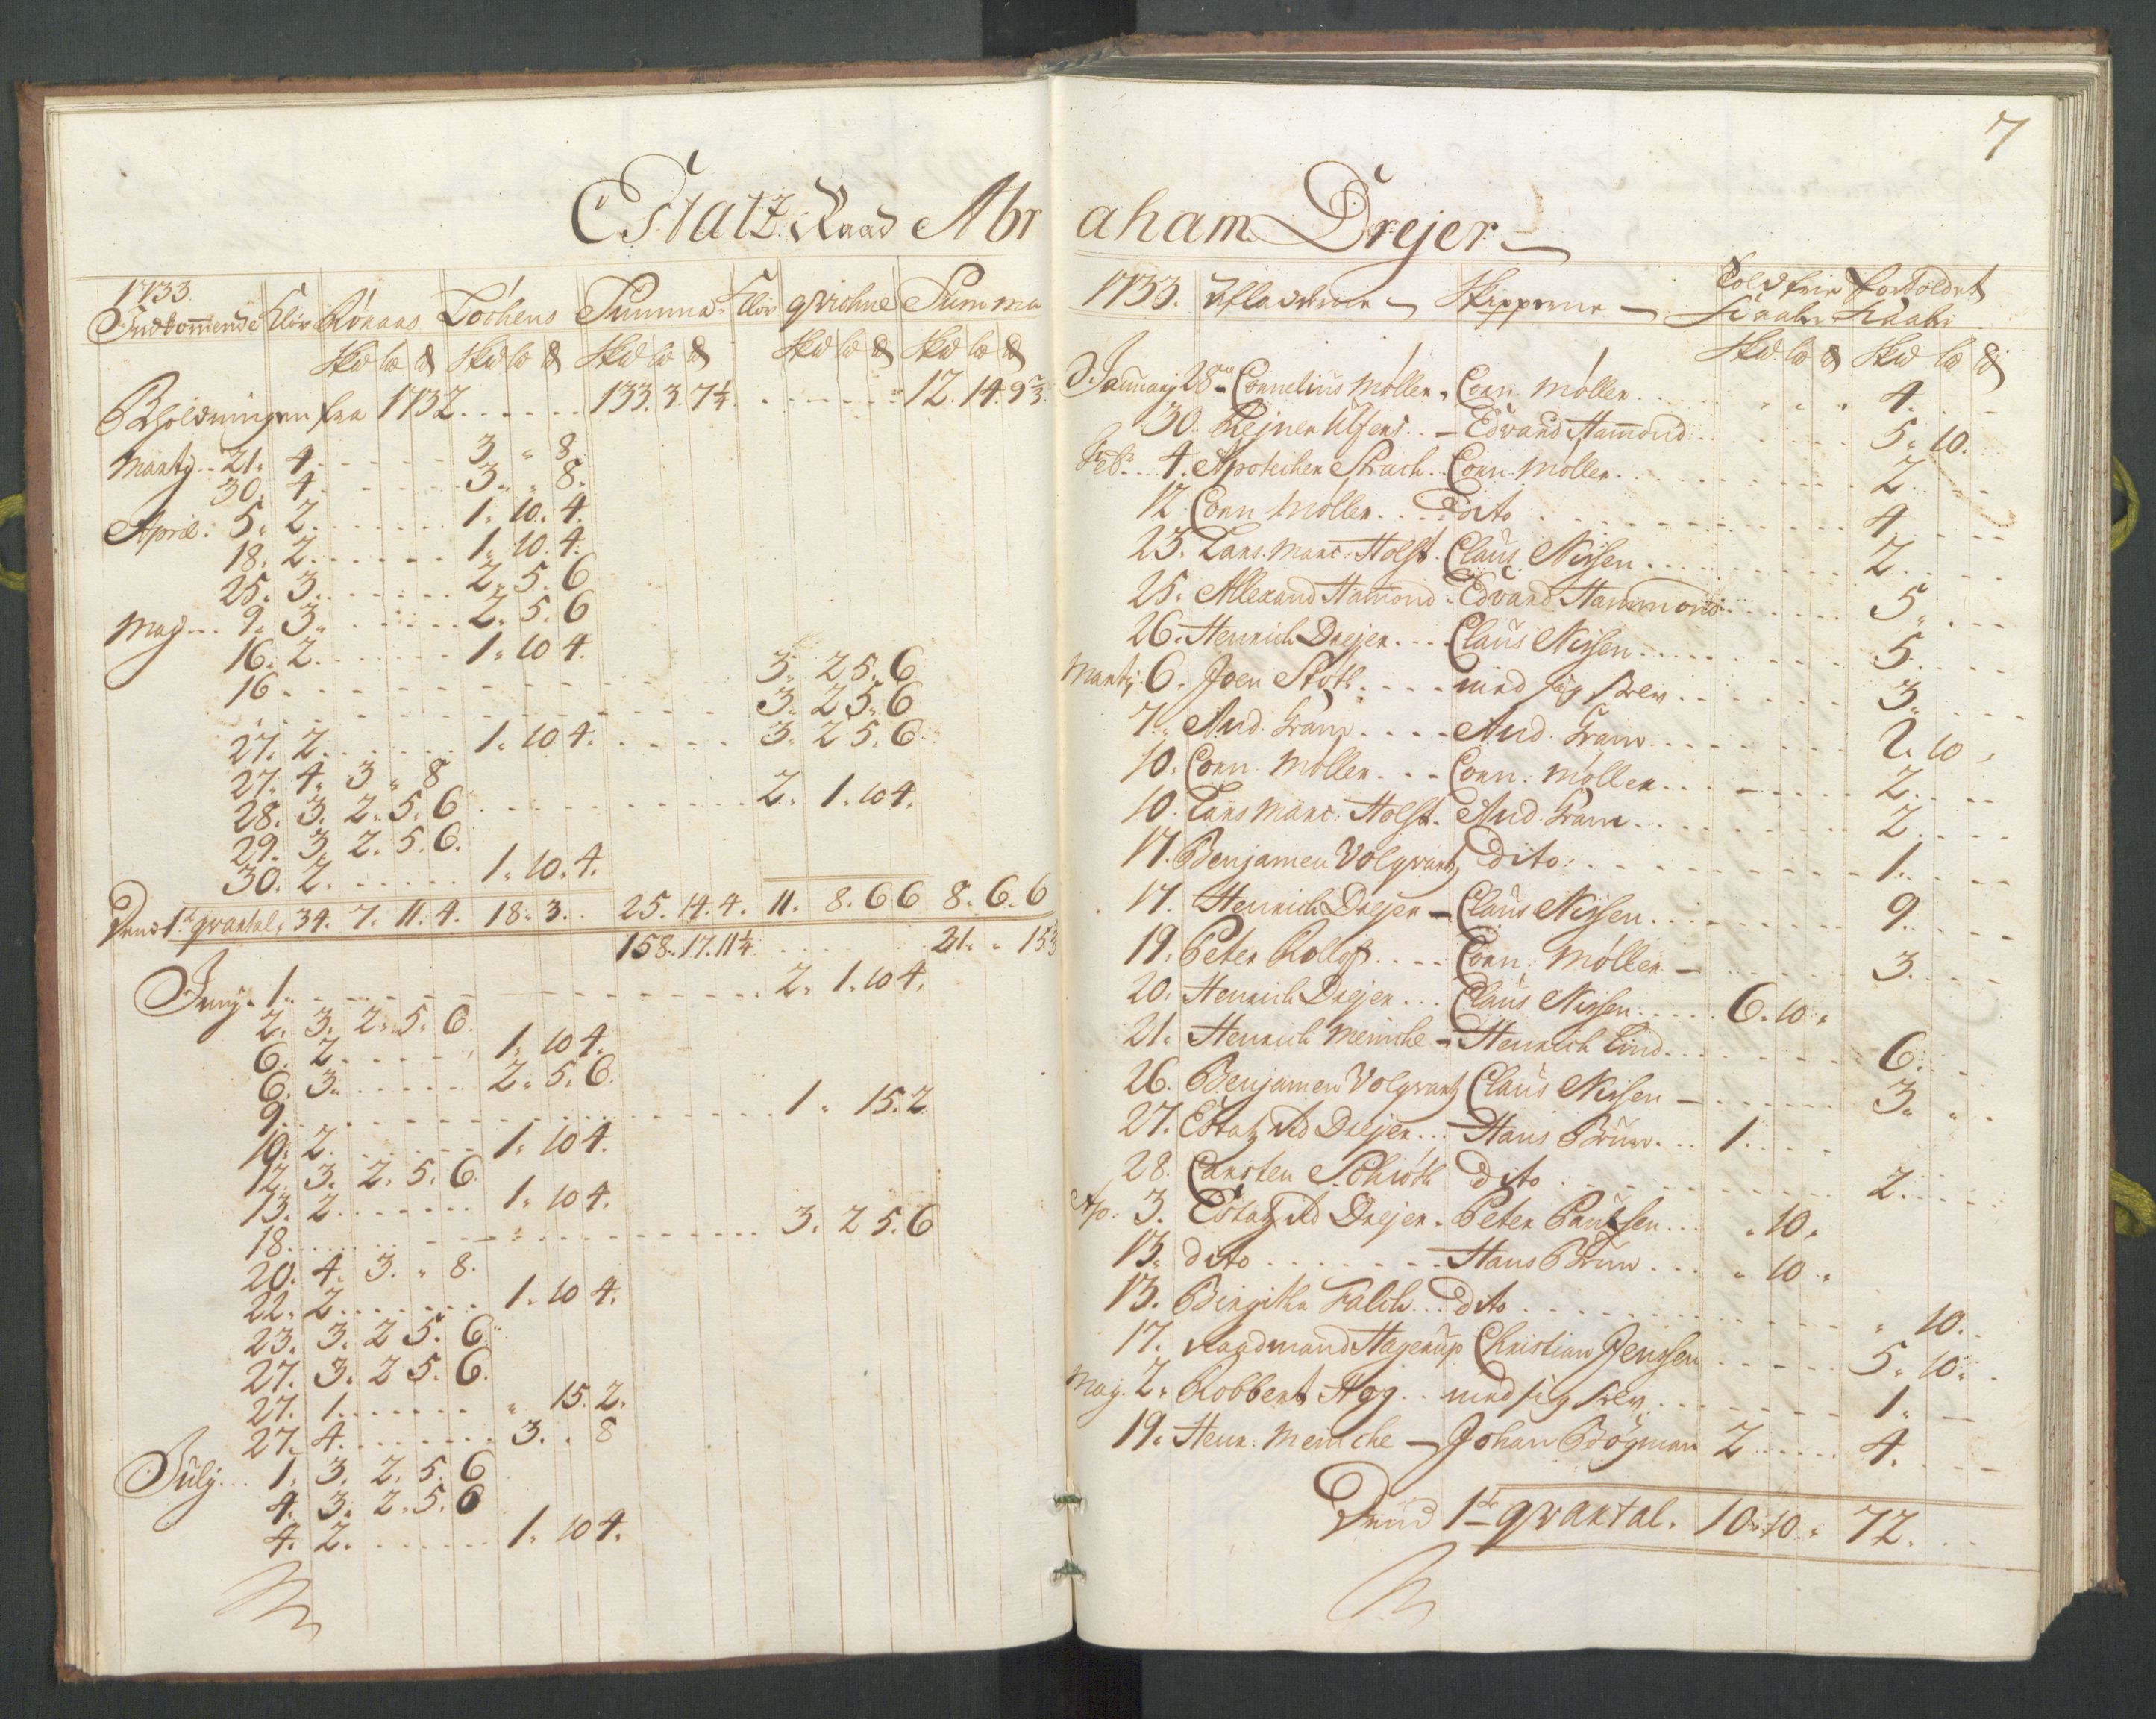 Estatz Raad Abr
1733
Indkom̄ende Kløv Rønaas Løchens Summa Kløv qviohne Summa
Sk℔ l℔ ℔ Sk℔ l℔ ℔ Sk℔ l℔ ℔ Sk℔ l℔ ℔ Sk℔ l℔ ℔
Bholdningen fra 1732 . . . . . . 133. 3. 7¼ . . . . . . 12. 14. 9⅔
Martij . . 21. 4 . . . . . 3 " 8.
30. 4 . . . . . 3. " 8.
April. 5. 2 . . . . . . 1. 10. 4.
18. 2 . . . . . . 1. 10. 4.
25. 3 . . . . . . 2. 5. 6
Maij . . . 9. 3. . . . . . 2. 5. 6
16. 2 . . . . . . 1. 10 4.
16. . . . . . . 3. 2 5. 6
. . . . . . . 3. 2 5. 6
27. 2 . . . . . . 1. 10 4. . . . . . 3. 2 5. 6
27. 4. 3 " 8
28. 3. 2. 5. 6 . . . . . . 2. 1. 10 4.
29. 3. 2. 5. 6.
30. 2. . . . . . 1. 10. 4.
1te qvartal. 34. 7. 11. 4. 18. 3. . 25. 14. 4. 11. 8. 6 6 8. 6. 6
158. 17. 11¼ . . . . . . 21. " 15⅓
Junij. 1. . . . . . . 2. 1. 10 4.
2. 3. 2. 5. 6.
6. 2. . . . . . 1. 10 4.
6. 3. . . . . . 2. 5. 6.
9. . . . . . . 1. 15. 2
10. 2. . . . . . 1. 10 4.
12. 3. 2. 5. 6.
13. 2. . . . . . 1. 10 4.
18. . . . . . . 3. 2 5. 6
20. 4. 3. " 8.
22. 2. . . . . . 1. 10 4.
23. 3. 2 5. 6.
27. 3. 2 5. 6.
27. 1. . . . . . " 15. 2.
27. 4. . . . . . 3. . 8
Julij . . . 1. 3. 2. 5. 6
4. 3. 2. 5. 6
4. 2. . . . . . 1. 10 4.
7
aham Drejer
1733. Afladerne Skipperne Toldfrie fortoldet
Sk℔ l℔ ℔ Sk℔ l℔ ℔
D. Januarij 28 Cornelius Møller. Corn. Møller . . . . 4. . .
30. Rejner Ulfers . . Edvard Ham̄ond . . . . 5. 10.
Feb. . . . 4. Apotecher Strach. Corn. Møller . . . . 2. . .
12. Corn Møller . . . . Dito . . . . 4. . .
23. Lars. Marc: Holst. Claus Nissen . . . . 2. . .
25. Allexand Ham̄ond. Edvard Hammond . . . . 5. . .
26. Henrich Drejer . . . Claus Nissen . . . . 5. . .
Martij. 6. Joen Støtt . . . . med sig selv . . . . 3. . .
7. And. Gram . . . . And. Gram . . . . 2. 10.
10. Corn. Møller . . . Corn. Møller . . . . 2. . .
10. Lars Marc: Holst. And. Gram . . . . 2. . .
17. Benjamen Volqvartz Dito . . . . 1. . .
17. Henrich Drejer Claus Nissen . . . . 9. . .
19. Peter Rollof . . . . Corn. Møller . . . . 3. . .
20. Henrich Drejer . . . Claus Nissen . . . . 6. 10.
21. Henrich Meinche Henrich Lind . . . . 6. . .
26. Benjamen Volqvartz Claus Nissen . . . . 3. " .
27. Estatz Rd Drejer . . . Hans Bruun . . . 1. . .
28. Carsten Schiøtt Dito . . . . 2. . .
Ap. 3. Estatz Rd Drejer. Peter Paulsen . . . . 10.
13. dito . . . . Hans Bruun . . . " 10.
13. Birgitha Falch . . . Dito . . . . " 10.
17. Raadmand Hagerup Christian Jenssen . . . . 5. 10.
Maij. 2. Robbert Hog . . med sig selv . . . . 1. "
19. Henr: Meinche Johan Bøgman 2 . . . . 4. . .
1te qvartal. 10. 10. 72. . .